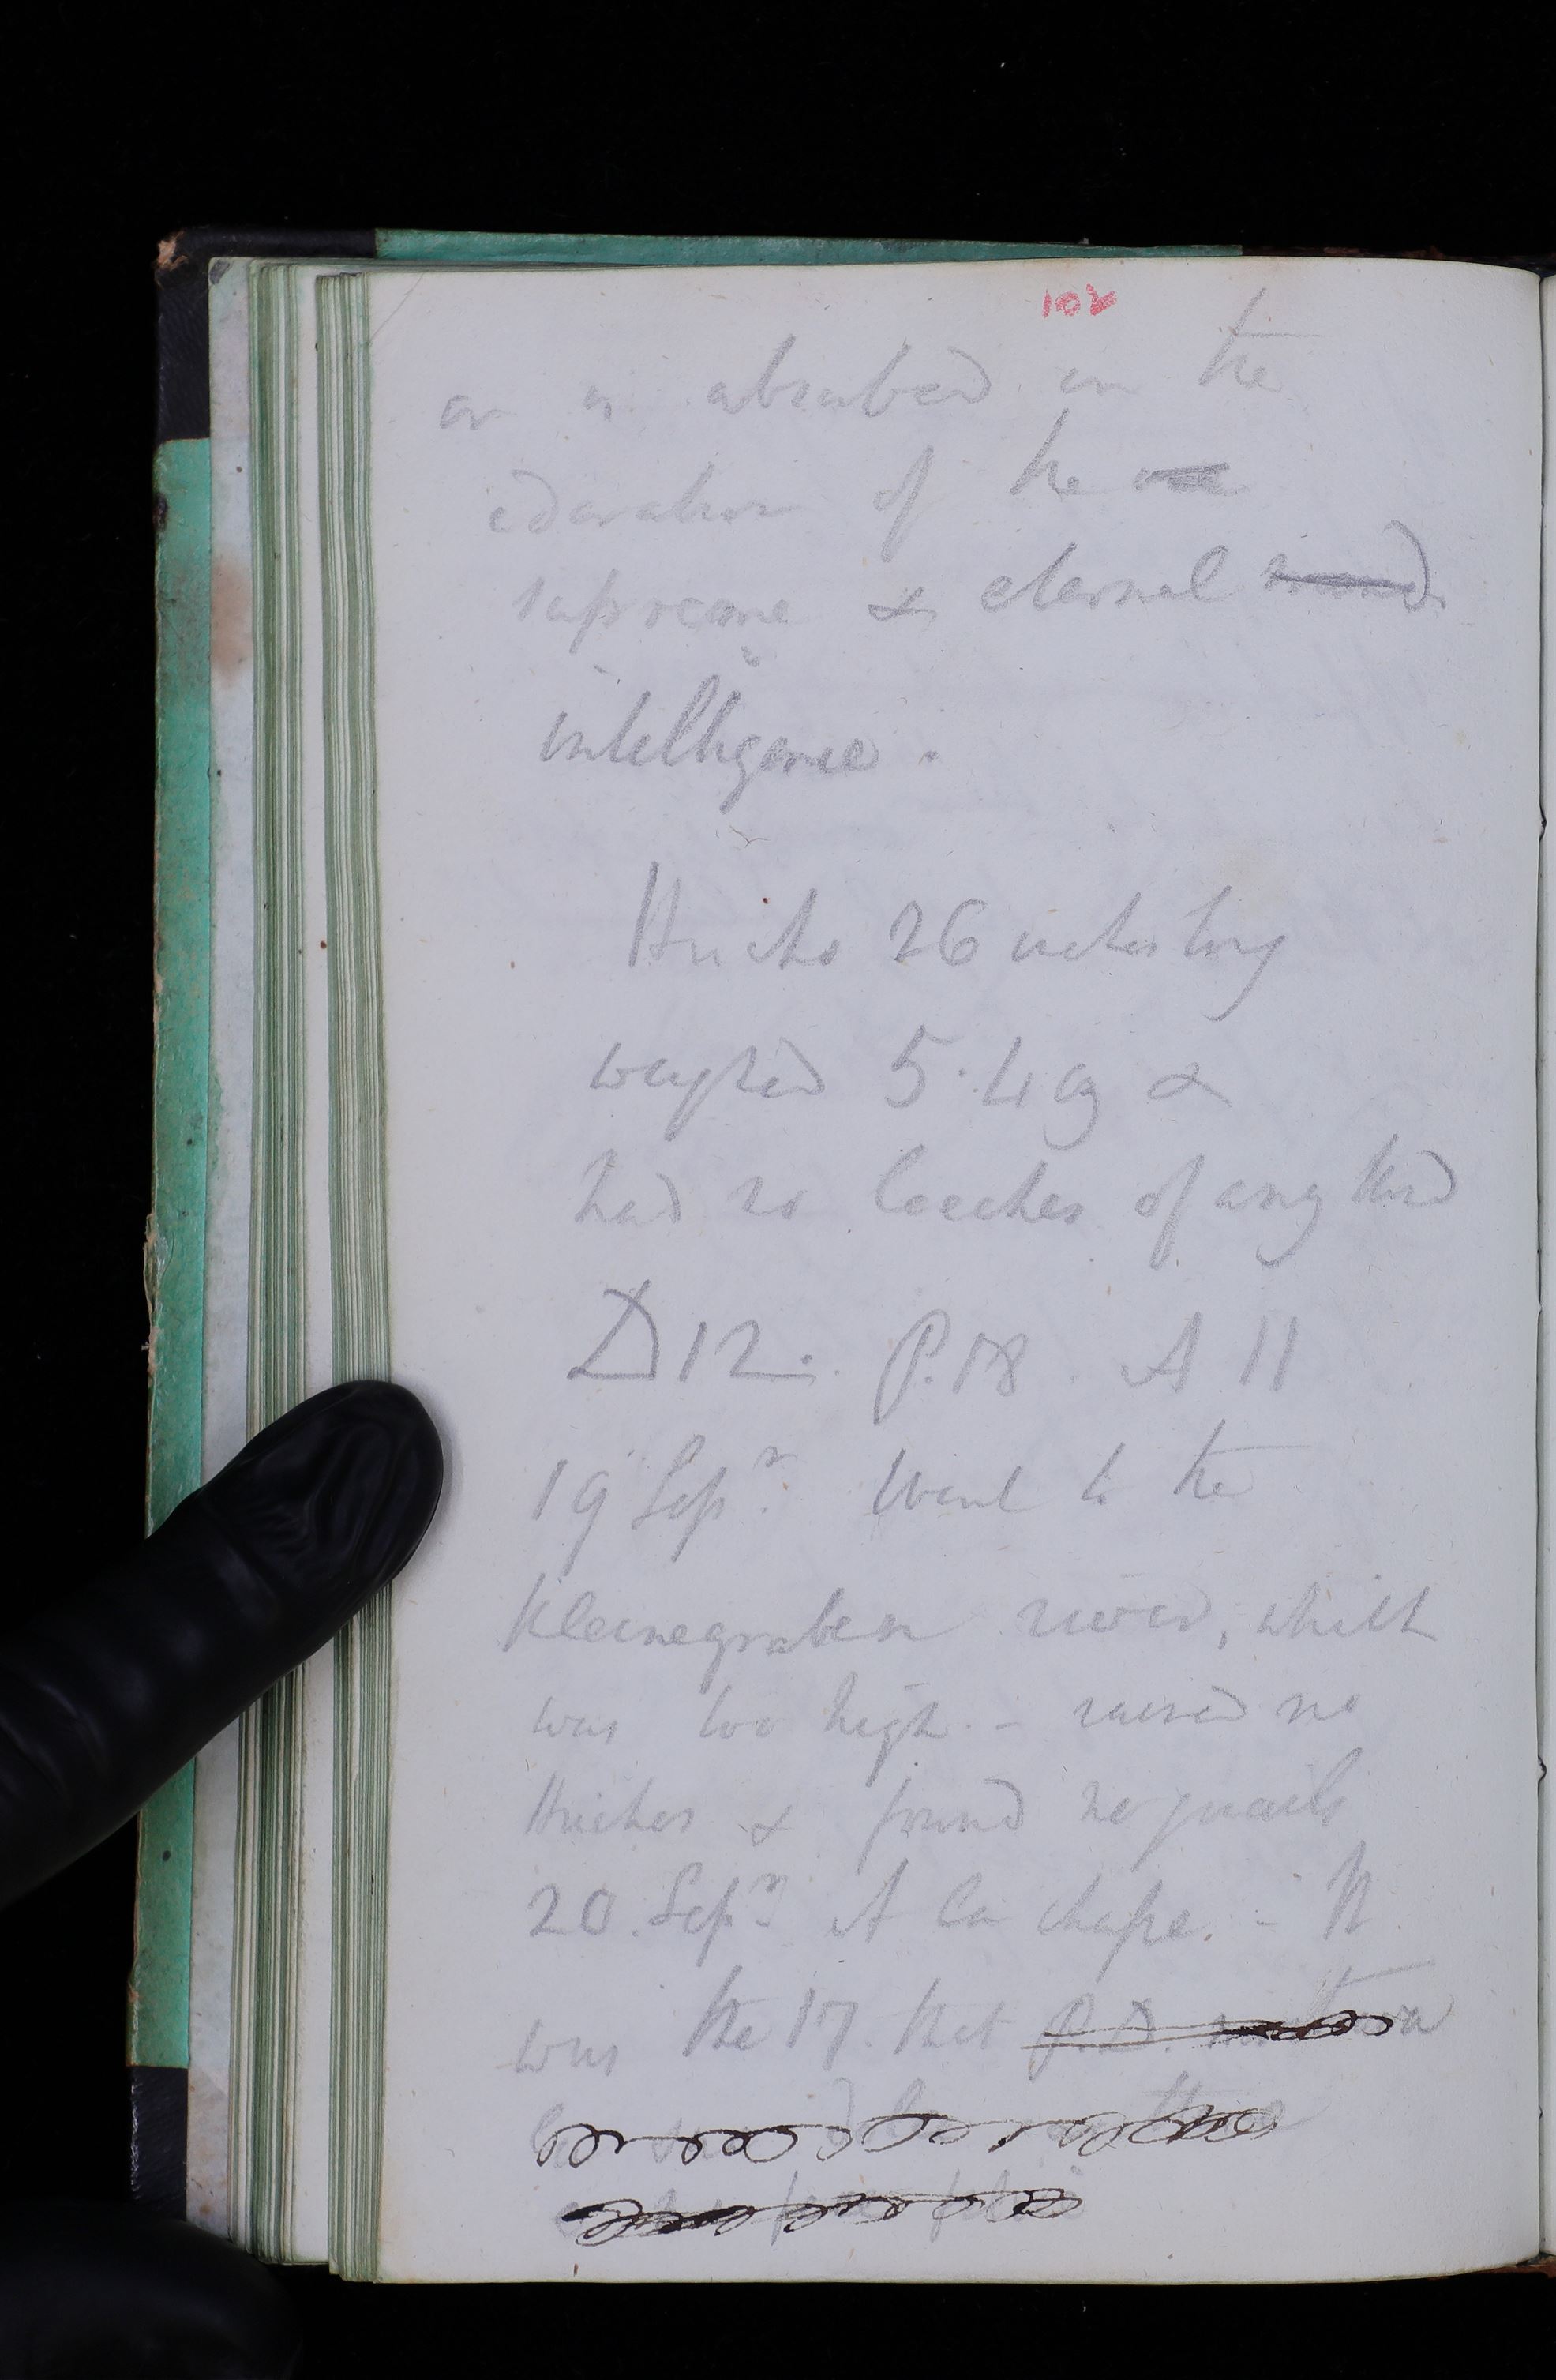 102
or is absorbed in the
adoration of the
supreme & eternal mind
intelligence.
Hucho 26 inches long
weighed 5.49 &
had no leaches of any kind
D 12. P. 18. A 11
19 Sepr. Went to the
Kleinegraben river, which
was too high. - raised no
Huchos & found no quails
20. Sepr. A la chasse. - It
was the 17. that P.D.